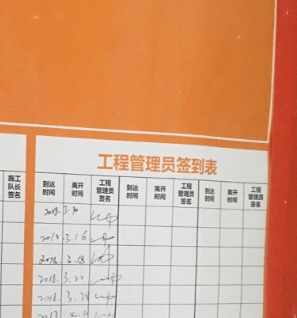 工程管理员签到表
施工队长签名 到达时间 离开时间 工程管理员签名 到达时间 离开时间 工程管理员签名 到达时间 离开时间 工程管理员签名
2018.3.10
2018.3.16
2018.3.18
2018.3.22
2018.3.28